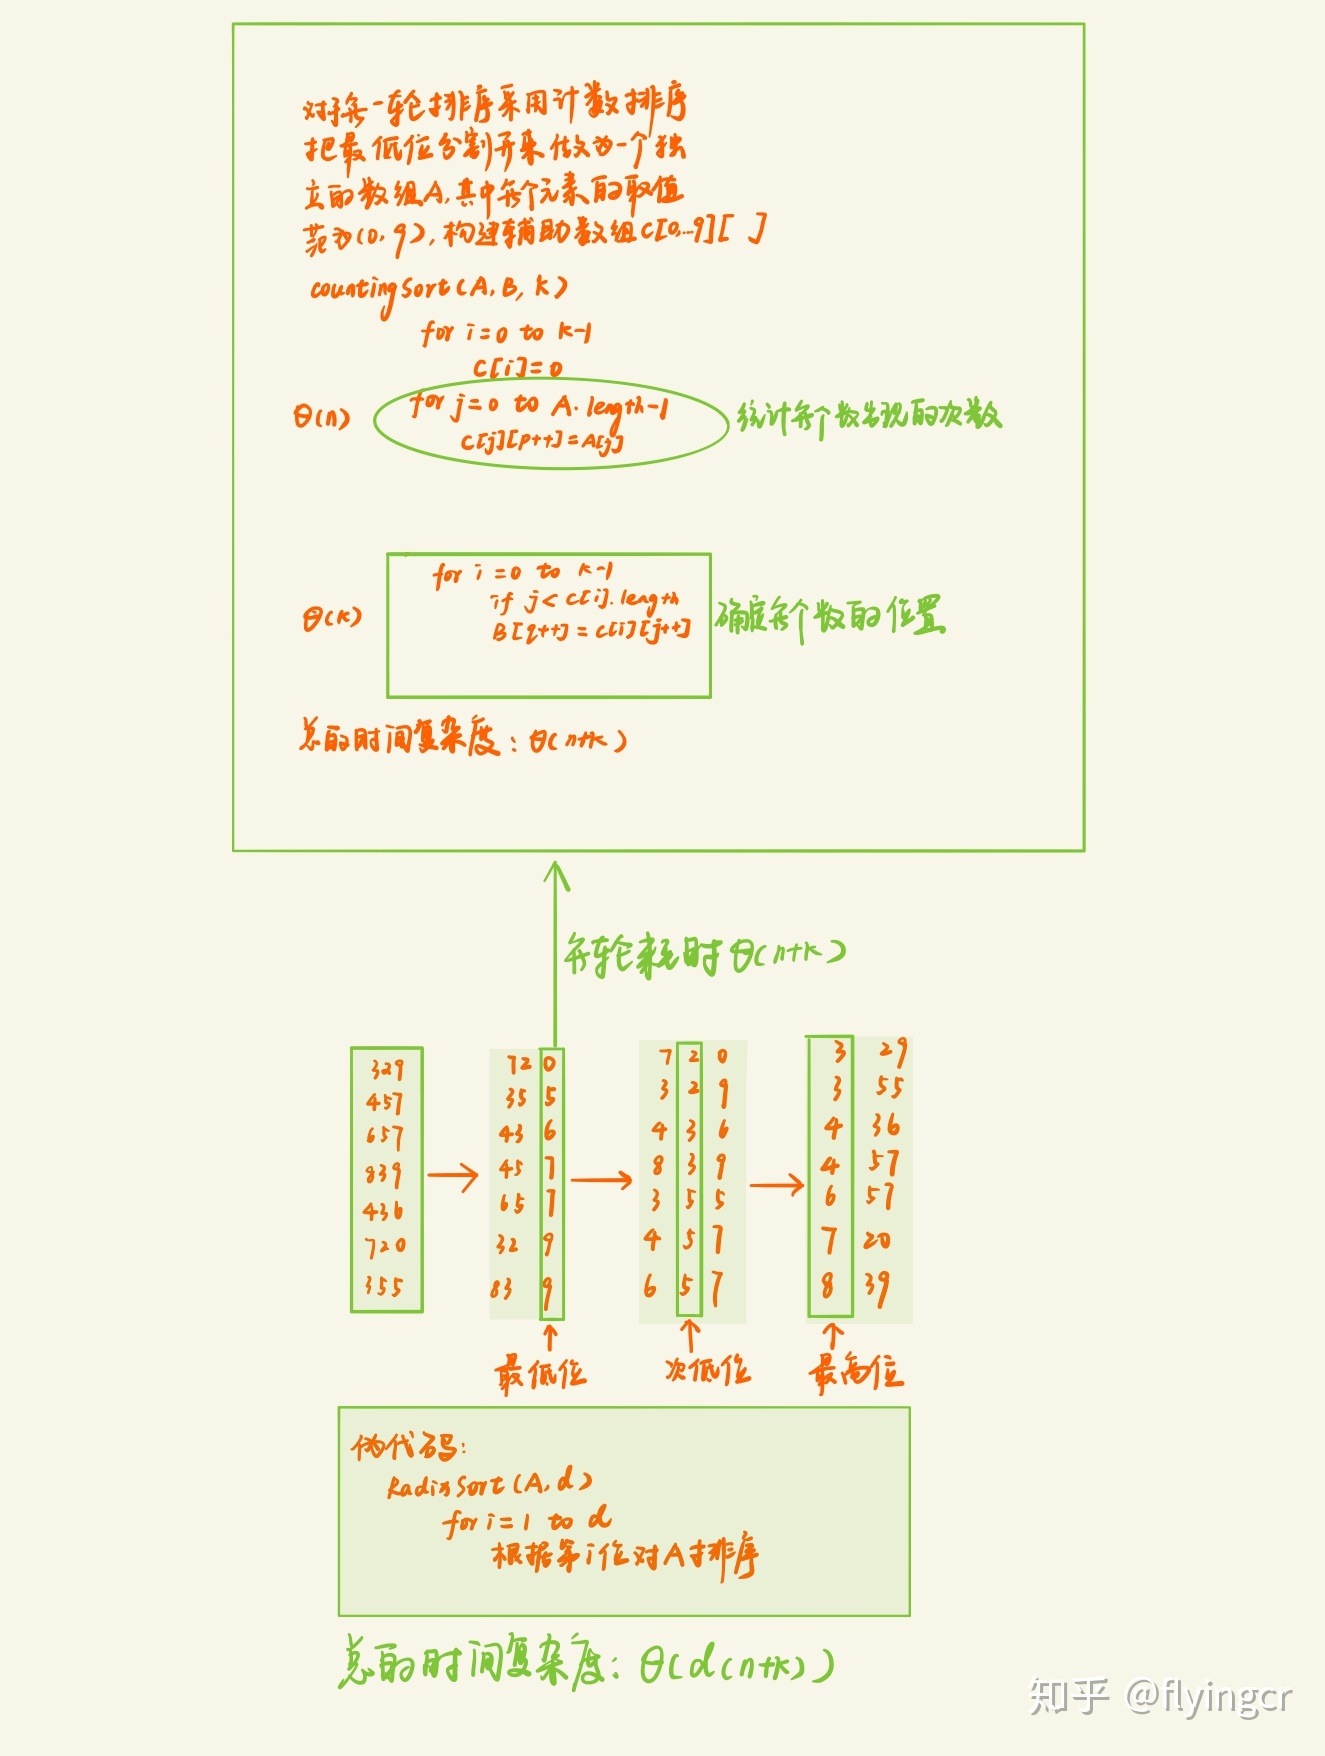 对于每一轮排序采用计数排序
把最低位分割开来做为一个独
立的数组A,其中每个元素的取值
范为(0,9),构建辅助数组C[0...9][ ]
countingSort(A,B,k)
for i=0 to k-1
C[i]=0
θ(n)
for j=0 to A.length-1
C[j][p++]=A[j]
统计每个数出现的次数
θ(k)
for i=0 to k-1
if j<C[i].length
B[q++]=C[i][j++]
确定每个数的位置
总的时间复杂度:θ(n+k)
每轮耗时θ(n+k)
329 720 720 3 29
457 355 329 3 55
657 436 436 4 36
839 457 839 4 57
436 657 355 6 57
720 329 457 7 20
355 839 657 8 39
最低位 次低位 最高位
伪代码:
RadixSort(A,d)
for i=1 to d
根据第i位对A排序
总的时间复杂度:θ(d(n+k))
知乎 @flyingcr